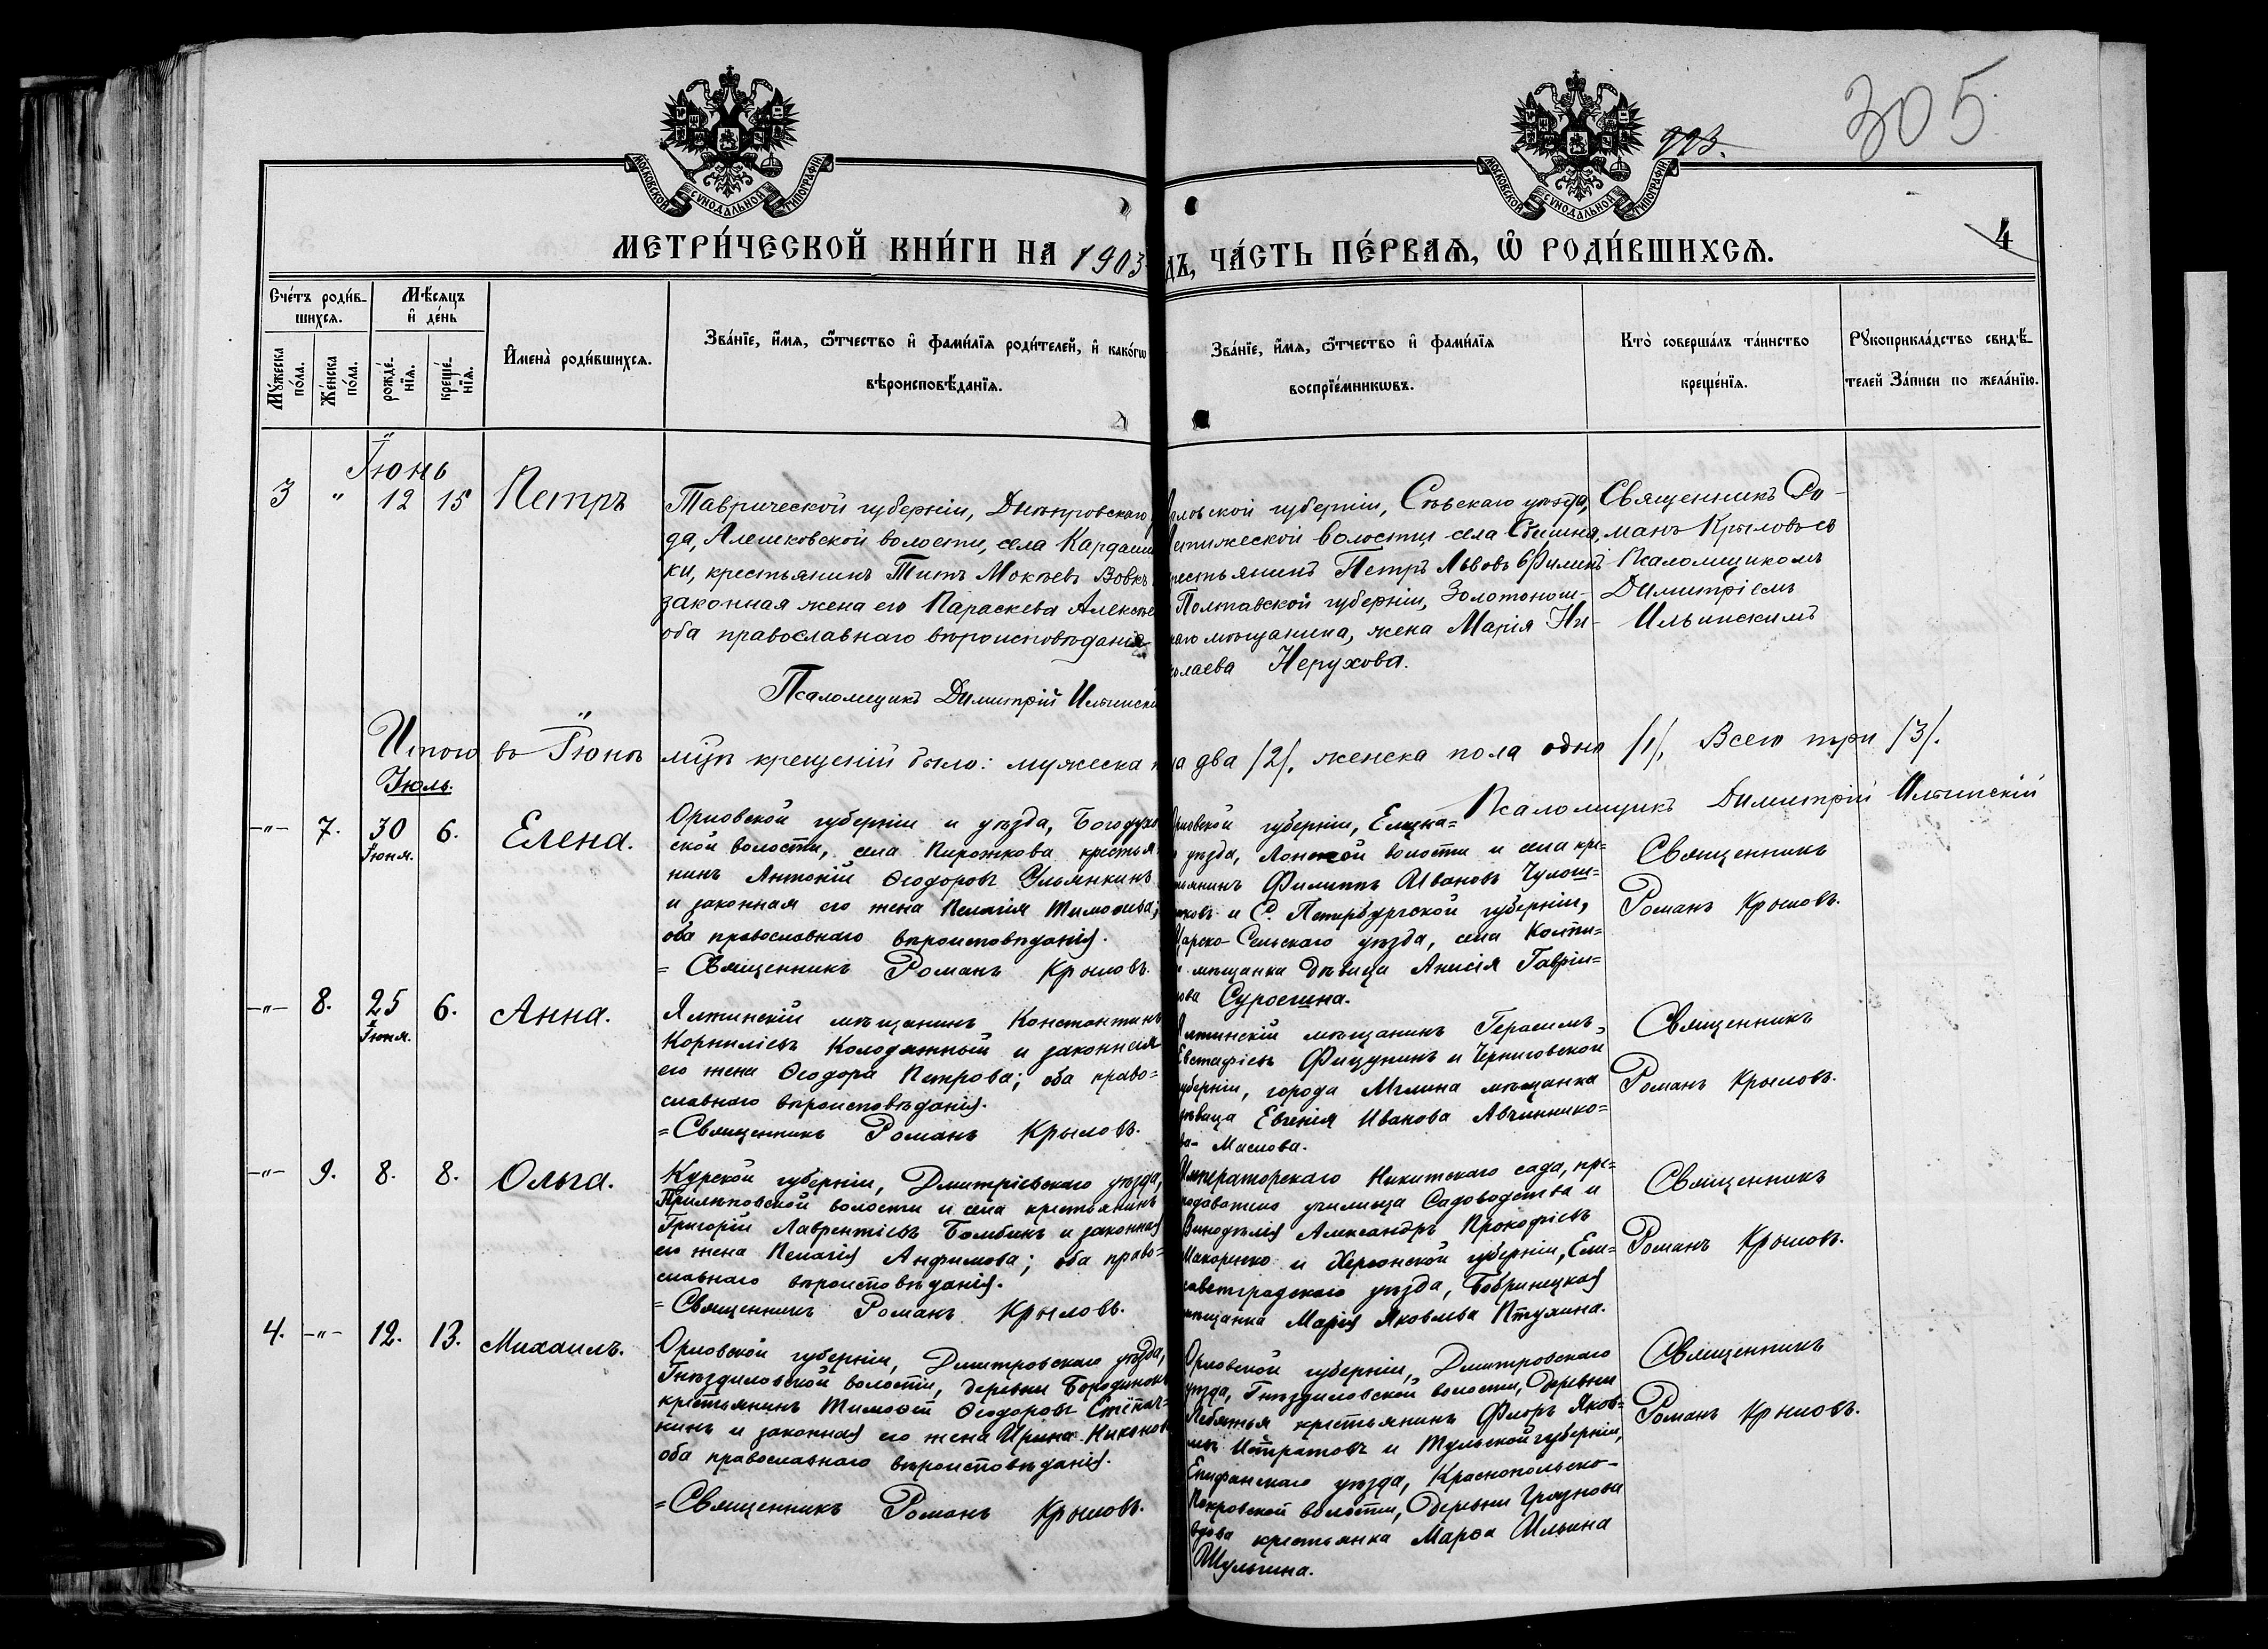 305
993.
4
МОСКОВСКОЙ СУНОДАЛЬНОЙ ТИПОГРАФІИ
МОСКОВСКОЙ СУНОДАЛЬНОЙ ТИПОГРАФІИ
МЕТРИ́ЧЕСКОЙ КНИ́ГИ НА 1903
ДЪ, ЧА́СТЬ ПЕ́РВАѦ, Ѡ РОДИ́ВШИХСѦ.
Сче́тъ роди́в-
шихсѧ.
Мѣ́сѧцъ
и҆ де́нь
Мꙋ́жеска
по́ла.
Же́нска
по́ла.
рожде́-
нїѧ.
креще́-
нїѧ.
И҆мена̀ роди́вшихсѧ.
Зва́нїе, и҆́мѧ, ѻ҆́тчество и҆ фами́лїѧ роди́телей, и҆ како́гѡ
вѣроисповѣ́данїѧ.
Зва́нїе, и҆́мѧ, ѻ҆́тчество и҆ фами́лїѧ
воспрїе́мникѡвъ.
Кто̀ соверша́лъ та́инство
креще́нїѧ.
Рꙋкоприкла́дство свидѣ́-
телей за́писи по жела́нїю.
Іюнь
3 " 12 15 Петръ
Таврической губерніи, Днѣпровскаго у
да, Алешковской волости, села Кардаши
ки, крестьянинъ Титъ Мокіевъ Вовкъ
законная жена его Параскева Алексѣе
оба православнаго вѣроисповѣданія
Псаломщикъ Димитрій Ильинскі
ловской губерніи, Сѣвскаго уѣзда,
волости села
рестьянинъ Петръ Львовъ Филинъ
Полтавской губерніи, Золотонош-
каго мѣщанина, жена Марія Ни-
колаева Нерухова.
Священникъ Ро-
манъ Крыловъ съ
Псаломщикомъ
Димитріемъ
Ильинскимъ
Итого въ Іюнѣ мцѣ крещеній было: мужеска п
ла два /2/, женска пола одно /1/, Всего три /3/.
Псаломщикъ Димитрій Ильинскій
Іюль.
-"- 7. 30 Іюня. 6. Елена.
Орловской губерніи и уѣзда, Богодухо
ской волости, села Пирожкова крестья
нинъ Антоній Ѳеодоровъ Ульянкинъ
и законная его жена Пелагія Тимоѳеева;
оба православнаго вѣроисповѣданія.
= Священникъ Романъ Крыловъ.
рловской губерніи, Елецка=
уѣзда, Ломской волости и села кре=
тьянинъ Филиппъ Ивановъ Чулош=
никовъ и С. Петербургской губерніи,
Царско-Сельскаго уѣзда, села Колпи=
мѣщанка дѣвица Анисія Гаврии=
лова Суросгина.
Священникъ
Романъ Крыловъ.
-"- 8. 25 Іюня. 6. Анна.
Ялтинскій мѣщанинъ Константинъ
Корниліевъ Колодяжный и законная
его жена Ѳеодора Петрова; оба право=
славнаго вѣроисповѣданія.
= Священникъ Романъ Крыловъ.
Ялтинскій мѣщанинъ Герасимъ
Евстафіевъ Фицунинъ и Черниговской
губерніи, города Мглина мѣщанка
дѣвица Евгенія Иванова Авчиннико=
ва- Маслова.
Священникъ
Романъ Крыловъ.
-"- 9. 8. 8. Ольга.
Курской губерніи, Дмитріевскаго уѣзда,
Прилѣповской волости и села крестьянинъ
Григорій Лаврентіевъ Бомбинъ и законная
его жена Пелагія Анфимова; оба право=
славнаго вѣроисповѣданія.
= Священникъ Романъ Крыловъ.
Императорскаго Никитскаго сада, пре=
подаватель училища Садоводства и
Винодѣлія Александръ Прокофіевъ
Макоренко и Херсонской губерніи, Ели=
саветградскаго уѣзда, Бобринецкая
мѣщанка Марія Яковлева Птухина.
Священникъ
Романъ Крыловъ.
4. -"- 12. 13. Михаилъ.
Орловской губерніи, Дмитровскаго уѣзда,
Гнѣздиловской волости, деревни Бородинокъ
крестьянинъ Тимоѳей Ѳеодоровъ Степач=
нинъ и законная его жена Ирина Никонов
оба православнаго вѣроисповѣданія.
= Священникъ Романъ Крыловъ.
Орловской губерніи, Дмитровскаго
уѣзда, Гнѣздиловской волости, деревни
Лебяжья крестьянинъ Флоръ Яков=
левъ Истратовъ и Тульской губерніи,
Епифанскаго уѣзда, Краснопольско-
Покровской волости, деревни Грязнова
вдова крестьянка Марѳа Ильина
Шульгина.
Священникъ
Романъ Крыловъ.